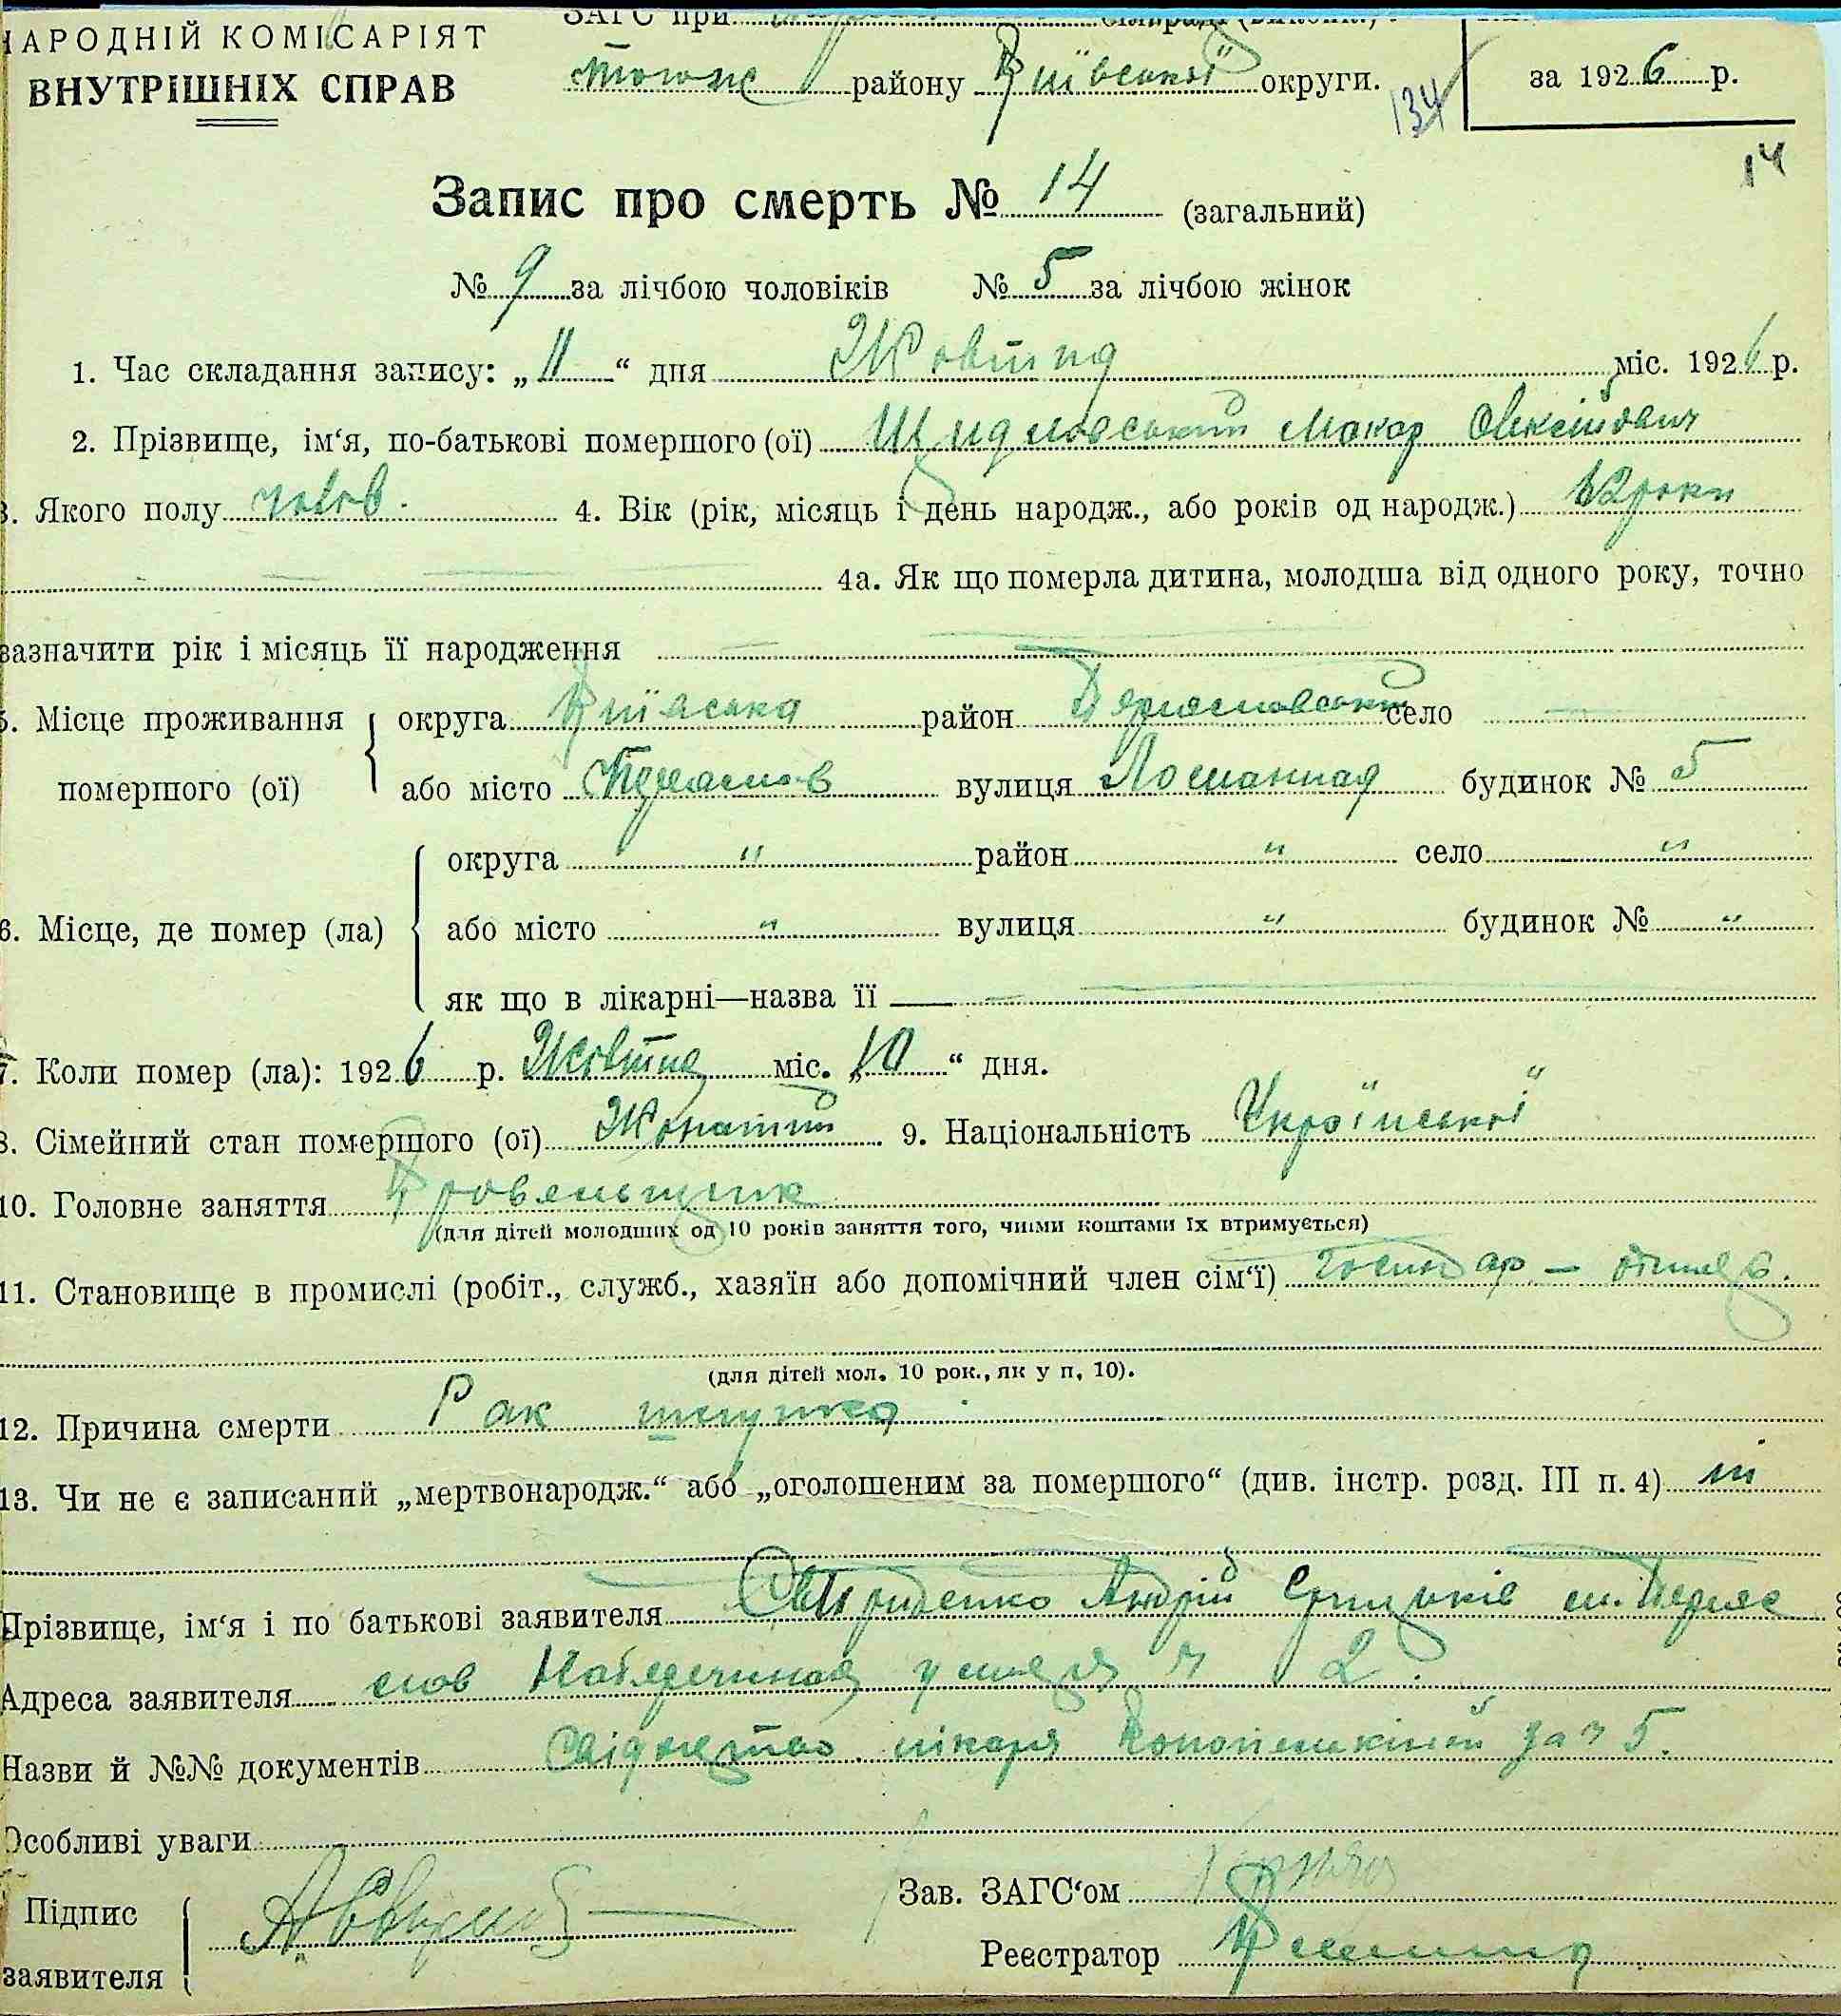 НАРОДНІЙ КОМІСАРІЯТ
ВНУТРІШНІХ СПРАВ
ЗАГС при
того ж району Київської округи.
за 1926 р.
134
14
Запис про смерть № 14 (загальний)
№ 9 за лічбою чоловіків № 5 за лічбою жінок
1. Час складання запису: „11“ дня Жовтня міс. 1926 р.
2. Прізвище, ім‘я, по-батькові помершого (ої) Макар Олексійович
3. Якого полу чолов. 4. Вік (рік, місяць і день народж., або років од народж.) роки
4а. Як що померла дитина, молодша від одного року, точно
зазначити рік і місяць її народження
5. Місце проживання помершого (ої) округа Київська район Переяславський село
або місто Переяслав вулиця будинок № 5
6. Місце, де помер (ла) округа " район " село "
або місто " вулиця " будинок № "
як що в лікарні—назва її —
7. Коли помер (ла): 1926 р. Жовтня міс. „10“ дня.
8. Сімейний стан помершого (ої) Жонатий 9. Національність Української
10. Головне заняття Кровельщик
(для дітей молодших од 10 років заняття того, чиїми коштами їх втримується)
11. Становище в промислі (робіт., служб., хазяїн або допомічний член сім‘ї)
(для дітей мол. 10 рок., як у п. 10).
12. Причина смерти Рак шлунка
13. Чи не є записаний „мертвонародж.“ або „оголошеним за помершого“ (див. інстр. розд. III п. 4) ні
Прізвище, ім‘я і по батькові заявителя Свириденко Андрій м. Переяс
Адреса заявителя лов Набережная улиця ч 2.
Назви й №№ документів лікаря за ч 5.
Особливі уваги
Підпис заявителя
Зав. ЗАГС‘ом
Реєстратор